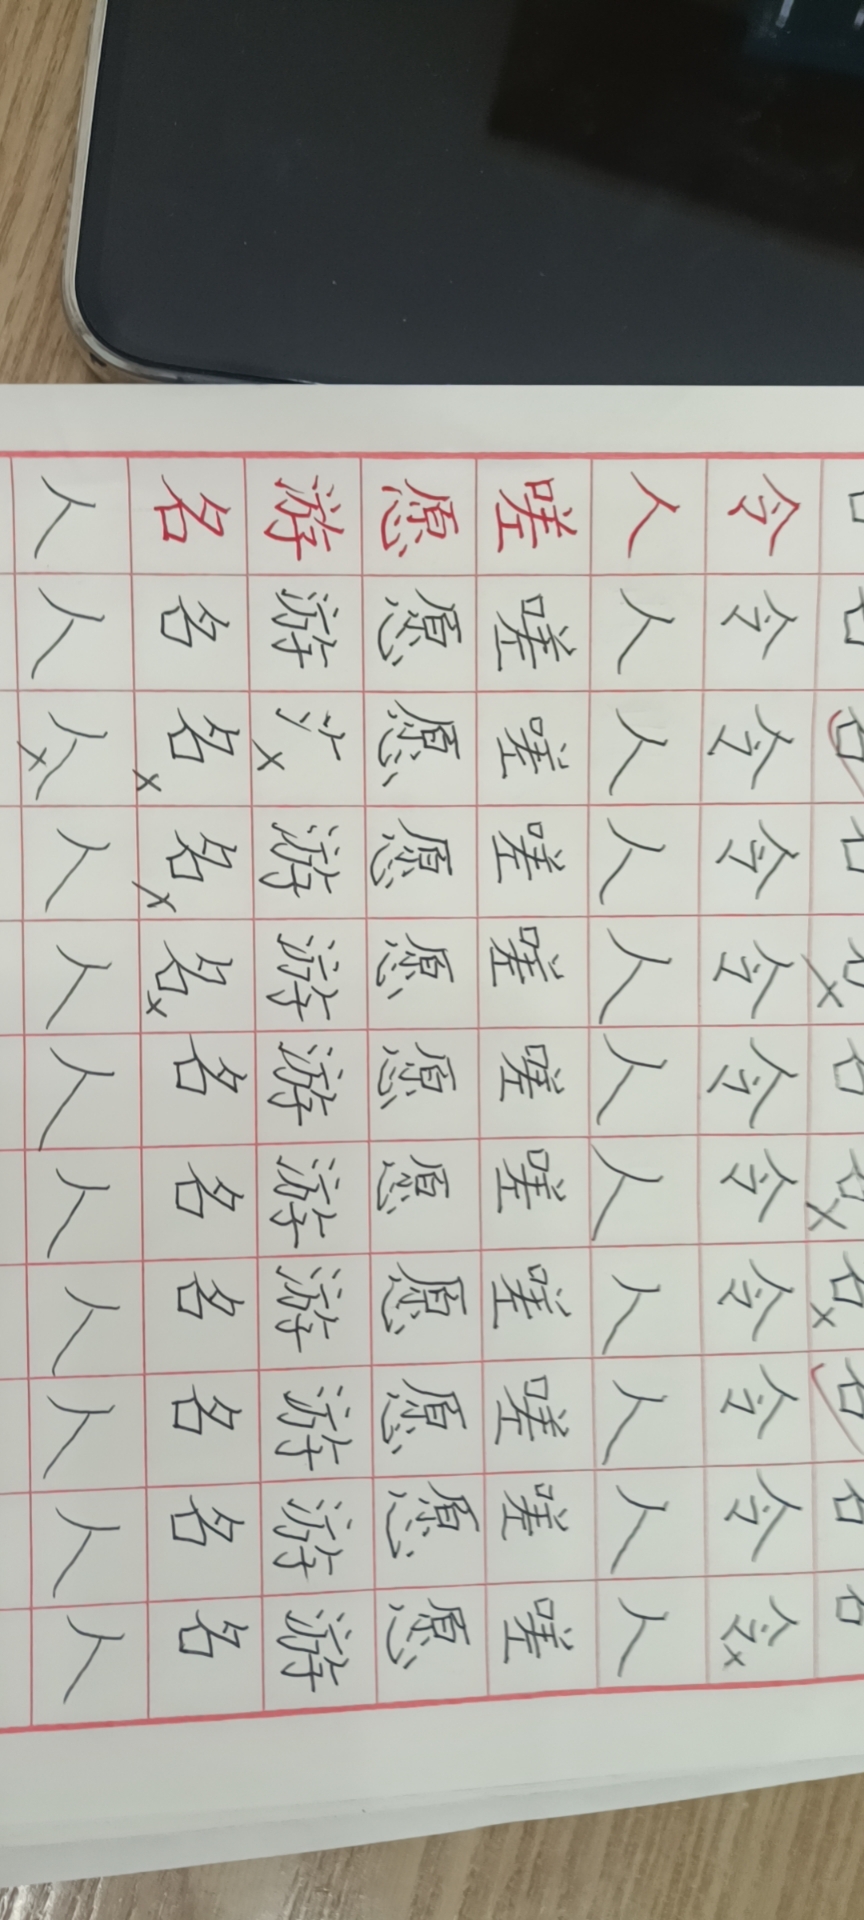 令令令令令令令令令令令
人人人人人人人人人人人
嗟嗟嗟嗟嗟嗟嗟嗟嗟嗟嗟
愿愿愿愿愿愿愿愿愿愿愿
游游游游游游游游游游
名名名名名名名名名名名
人人人人人人人人人人人